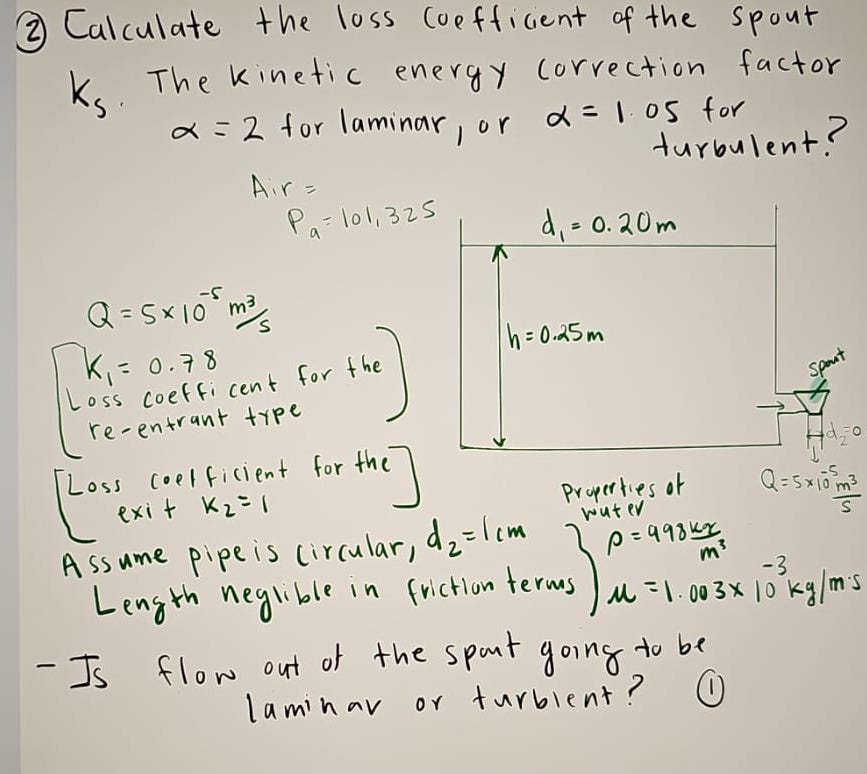 ② Calculate the loss Coefficient of the spout
Ks. The kinetic energy correction factor
α = 2 for laminar, or α = 1.05 for
turbulent?
Air =
Pa = 101,325
d₁ = 0.20m
Q = 5×10⁻⁵ m³/s
h = 0.25m
K₁ = 0.78
Loss coefficent for the
re-entrant type
spout
d₂=0
Q = 5×10⁻⁵ m³/s
[Loss coefficient for the
exit K₂ = 1]
Properties of
water
ρ = 998 kg/m³
μ = 1.003 × 10⁻³ kg/m·s
Assume pipe is circular, d₂ = 1cm
Length neglible in friction terms
- Is flow out of the spout going to be
laminar or turblent? ①